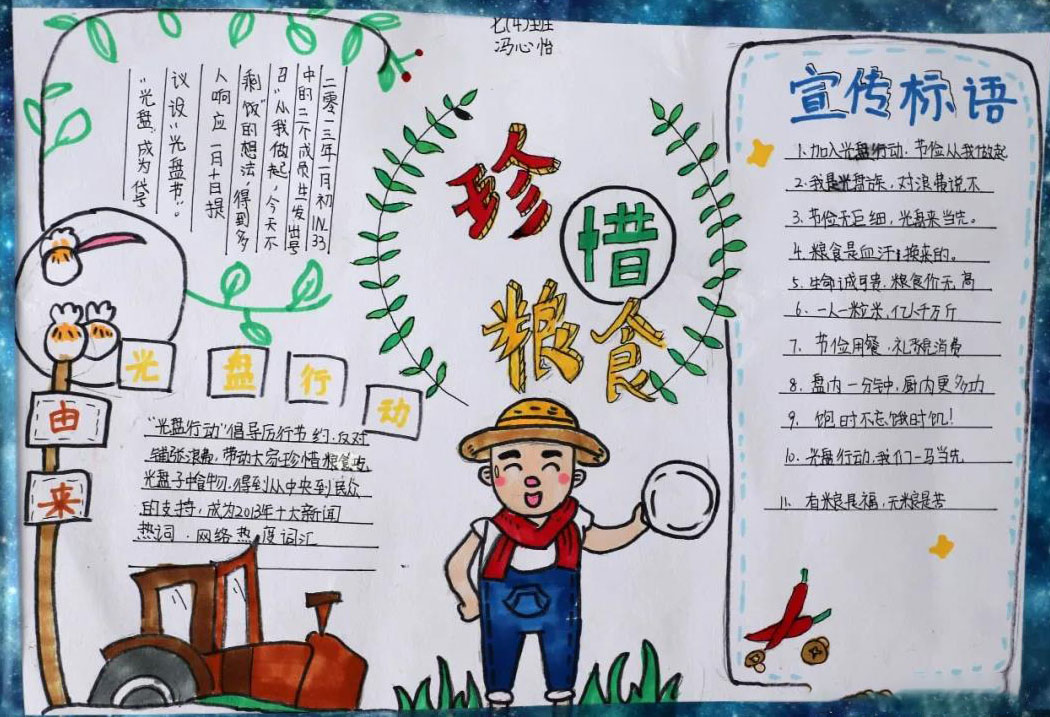 七(4)班
冯心怡
二零一三年一月初IN_33
中的三个成员生发出号
召“从我做起,今天不
剩饭”的想法,得到多
人响应 一月十日提
议设“光盘书”。
“光盘”成为代号
珍惜
粮食
光盘行动
由来
“光盘行动”倡导厉行节约,反对
铺张浪费,带动大家珍惜粮食吃
光盘子中食物,得到从中央到民众
的支持,成为2013年十大新闻
热词、网络热度词汇
宣传标语
1.加入光盘行动.节俭从我做起
2.我是光盘族,对浪费说不
3.节俭无巨细,光盘来当先。
4.粮食是血汗换来的。
5.生命诚可贵.粮食价无高
6.一人一粒米,亿人千万斤
7.节俭用餐.礼貌消费
8.盘内一分钟,厨内更多功
9.饱时不忘饿时饥!
10.光盘行动,我们一马当先
11.有米良是福,无粮是苦